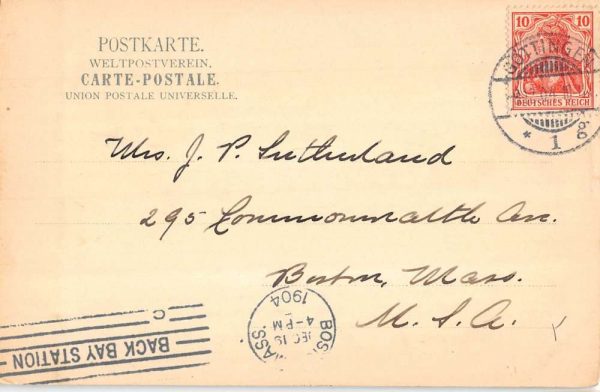 POSTKARTE.
WELTPOSTVEREIN.
CARTE-POSTALE.
UNION POSTALE UNIVERSELLE.
10 10
DEUTSCHES REICH
GÖTTINGEN
* 1
Mrs. J. P. Sutherland
295 Commonwealth Av.
Boston, Mass.
U. S. A.
BOS MASS
DEC 19
4-PM
1904
BACK BAY STATION
C